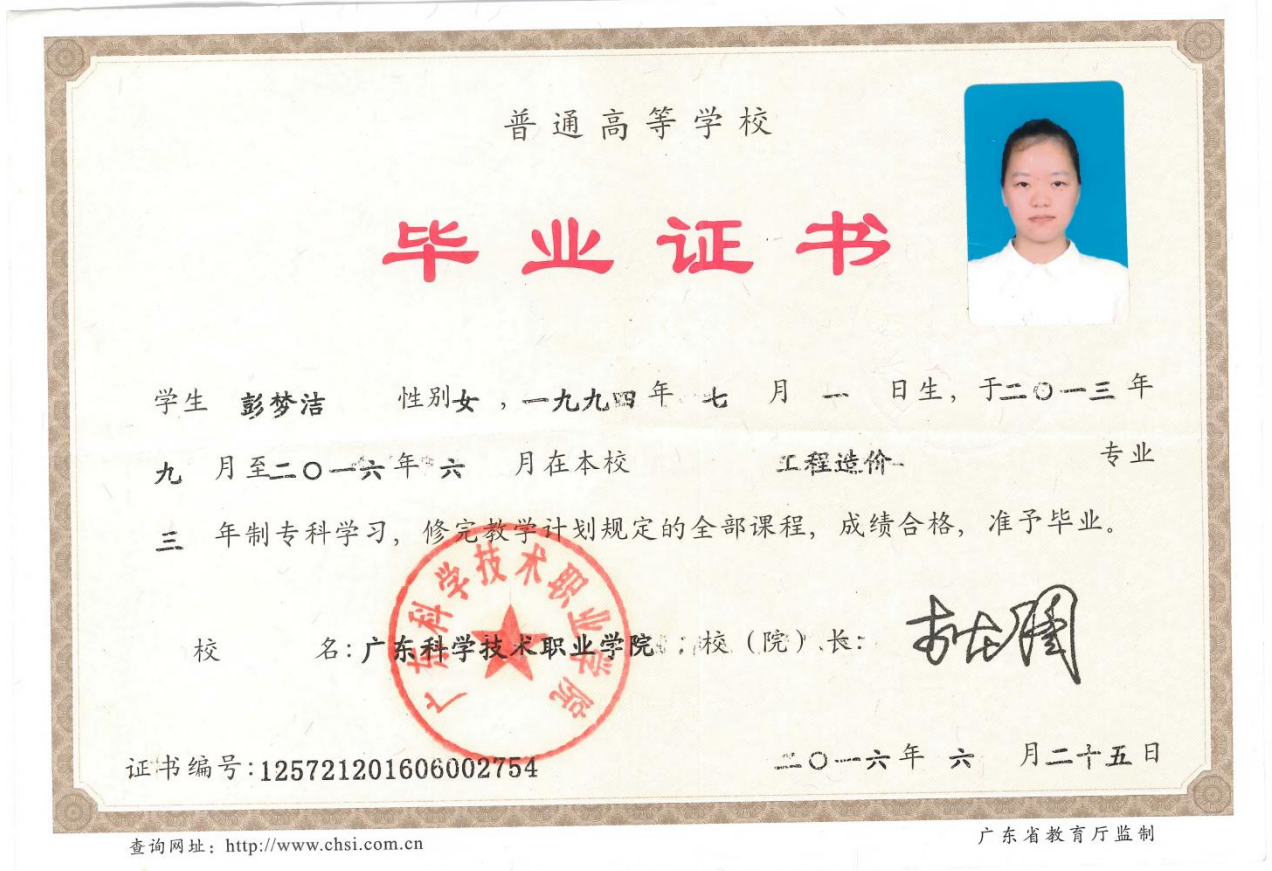 普通高等学校
毕业证书
学生 彭梦洁 性别女，一九九四年 七 月 一 日生，于二〇一三年
九 月至二〇一六年 六 月在本校 工程造价 专业
三 年制专科学习，修完教学计划规定的全部课程，成绩合格，准予毕业。
校 名：广东科学技术职业学院 校（院）长：
广东科学技术职业学院
证书编号：125721201606002754 二〇一六年 六 月二十五日
查询网址：http://www.chsi.com.cn 广东省教育厅监制